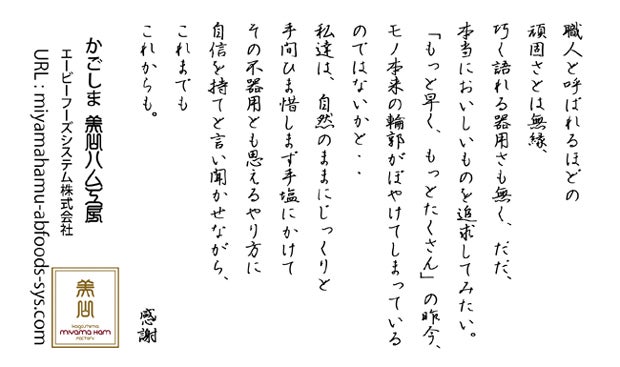 職人と呼ばれるほどの
頑固さとは無縁、
巧く語れる器用さも無く、だだ、
本当においしいものを追求してみたい。
「もっと早く、もっとたくさん」の昨今、
モノ本来の輪郭がぼやけてしまっている
のではないかと・・
私達は、自然のままにじっくりと
手間ひま惜しまず手塩にかけて
その不器用とも思えるやり方に
自信を持てと言い聞かせながら、
これまでも
これからも。
感謝
かごしま 美山ハム工房
エービーフーズシステム株式会社
URL : miyamahamu-abfoods-sys.com
美山
kagoshima
MIYAMA HAM
FACTORY